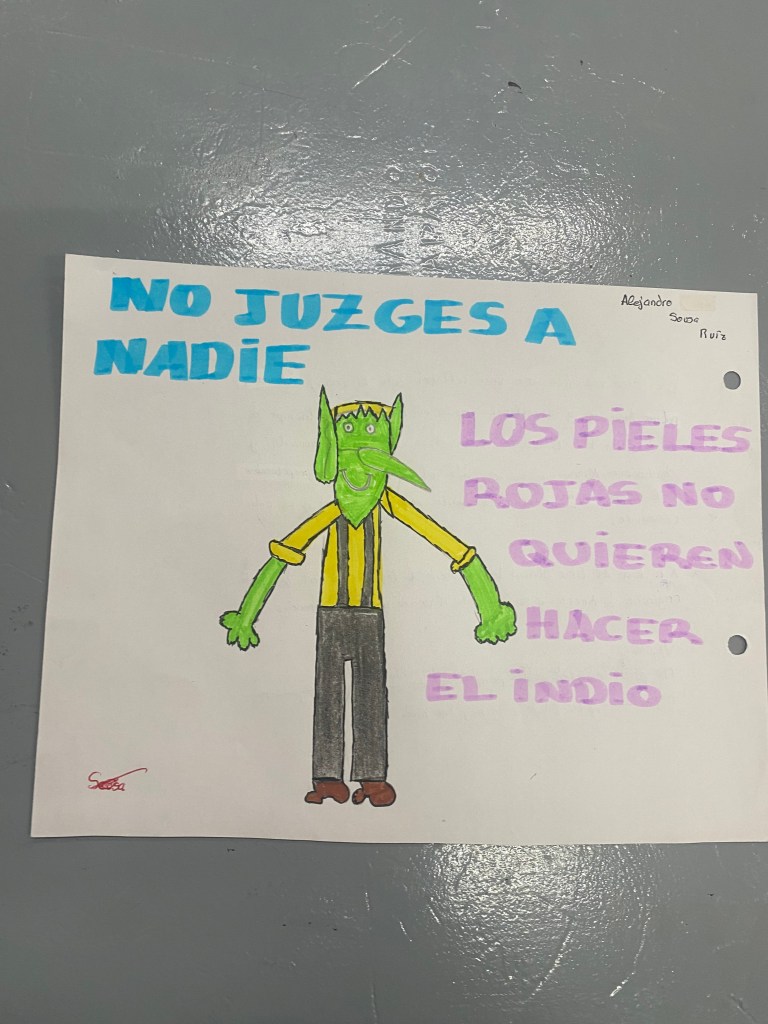 NO JUZGES A
NADIE
Alejandro
Sousa
Ruiz
LOS PIELES
ROJAS NO
QUIEREN
HACER
EL INDIO
Sousa